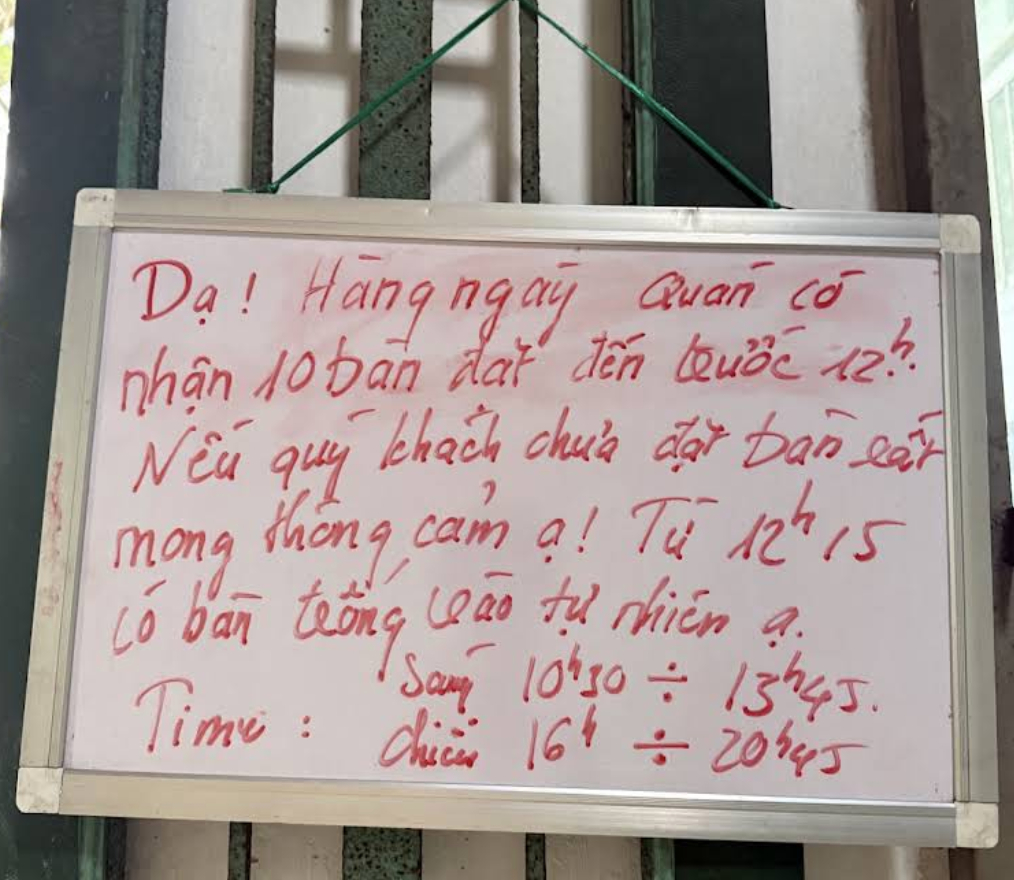 Dạ! Hàng ngày Quán có
nhận 10 bàn đặt đến trước 12h.
Nếu quý khách chưa đặt bàn rất
mong thông cảm ạ! Từ 12h15
có bàn trống vào tự nhiên ạ.
Time: Sáng 10h30 ÷ 13h45.
chiều 16h ÷ 20h45